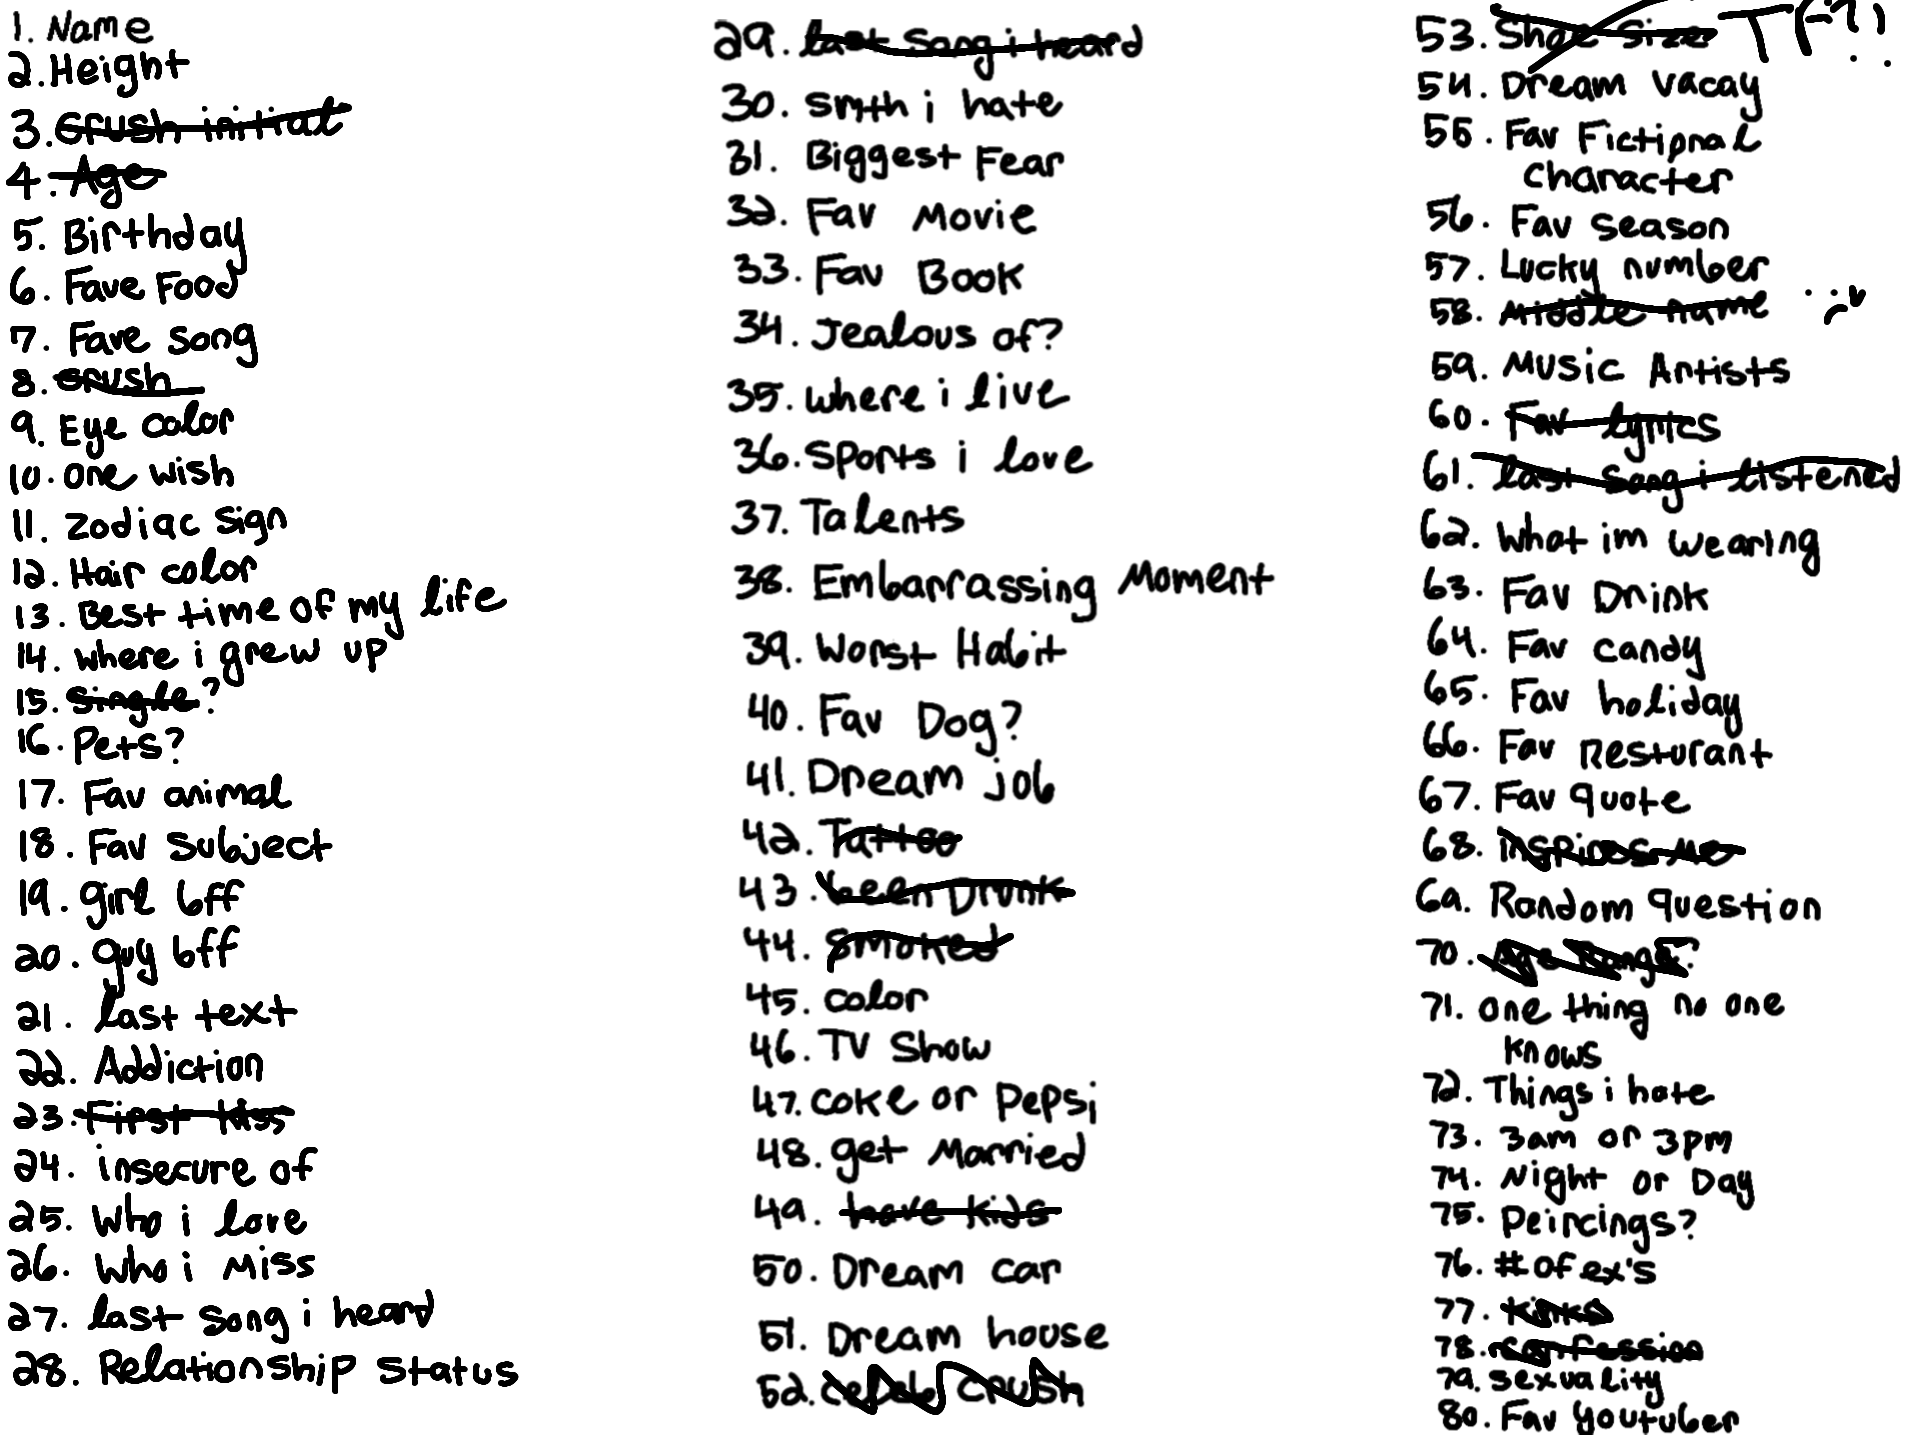 1. Name
2. Height
3. Crush initial
4. Age
5. Birthday
6. Fave Food
7. Fave song
8. crush
9. Eye color
10. one wish
11. Zodiac sign
12. Hair color
13. Best time of my life
14. where i grew up
15. single?
16. Pets?
17. Fav animal
18. Fav subject
19. girl bff
20. guy bff
21. last text
22. Addiction
23. First kiss
24. insecure of
25. Who i love
26. Who i Miss
27. last song i heard
28. Relationship status
29. last song i heard
30. smth i hate
31. Biggest Fear
32. Fav Movie
33. Fav Book
34. Jealous of?
35. where i live
36. Sports i love
37. Talents
38. Embarrassing Moment
39. Worst Habit
40. Fav Dog?
41. Dream job
42. Tattoo
43. been Drunk
44. smoked
45. color
46. TV Show
47. coke or Pepsi
48. get Married
49. have kids
50. Dream car
51. Dream house
52. celeb crush
53. Shoe Size
54. Dream Vacay
55. Fav Fictional
character
56. Fav season
57. Lucky number
58. Middle name
59. Music Artists
60. Fav lyrics
61. last song i listened
62. What im wearing
63. Fav Drink
64. Fav candy
65. Fav holiday
66. Fav Resturant
67. Fav quote
68. inspires Me
69. Random question
70. Age Range?
71. one thing no one
knows
72. Things i hate
73. 3am or 3pm
74. Night or Day
75. Peircings?
76. # of ex's
77. kinks
78. confession
79. sexuality
80. Fav Youtuber